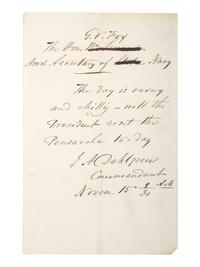 G. V. Fox
The Hon.
Asst. Secretary of Navy
The day is
and chilly - will the
President visit the
Pensacola to-day
J A Dahlgren
Commandant
Novem. 15